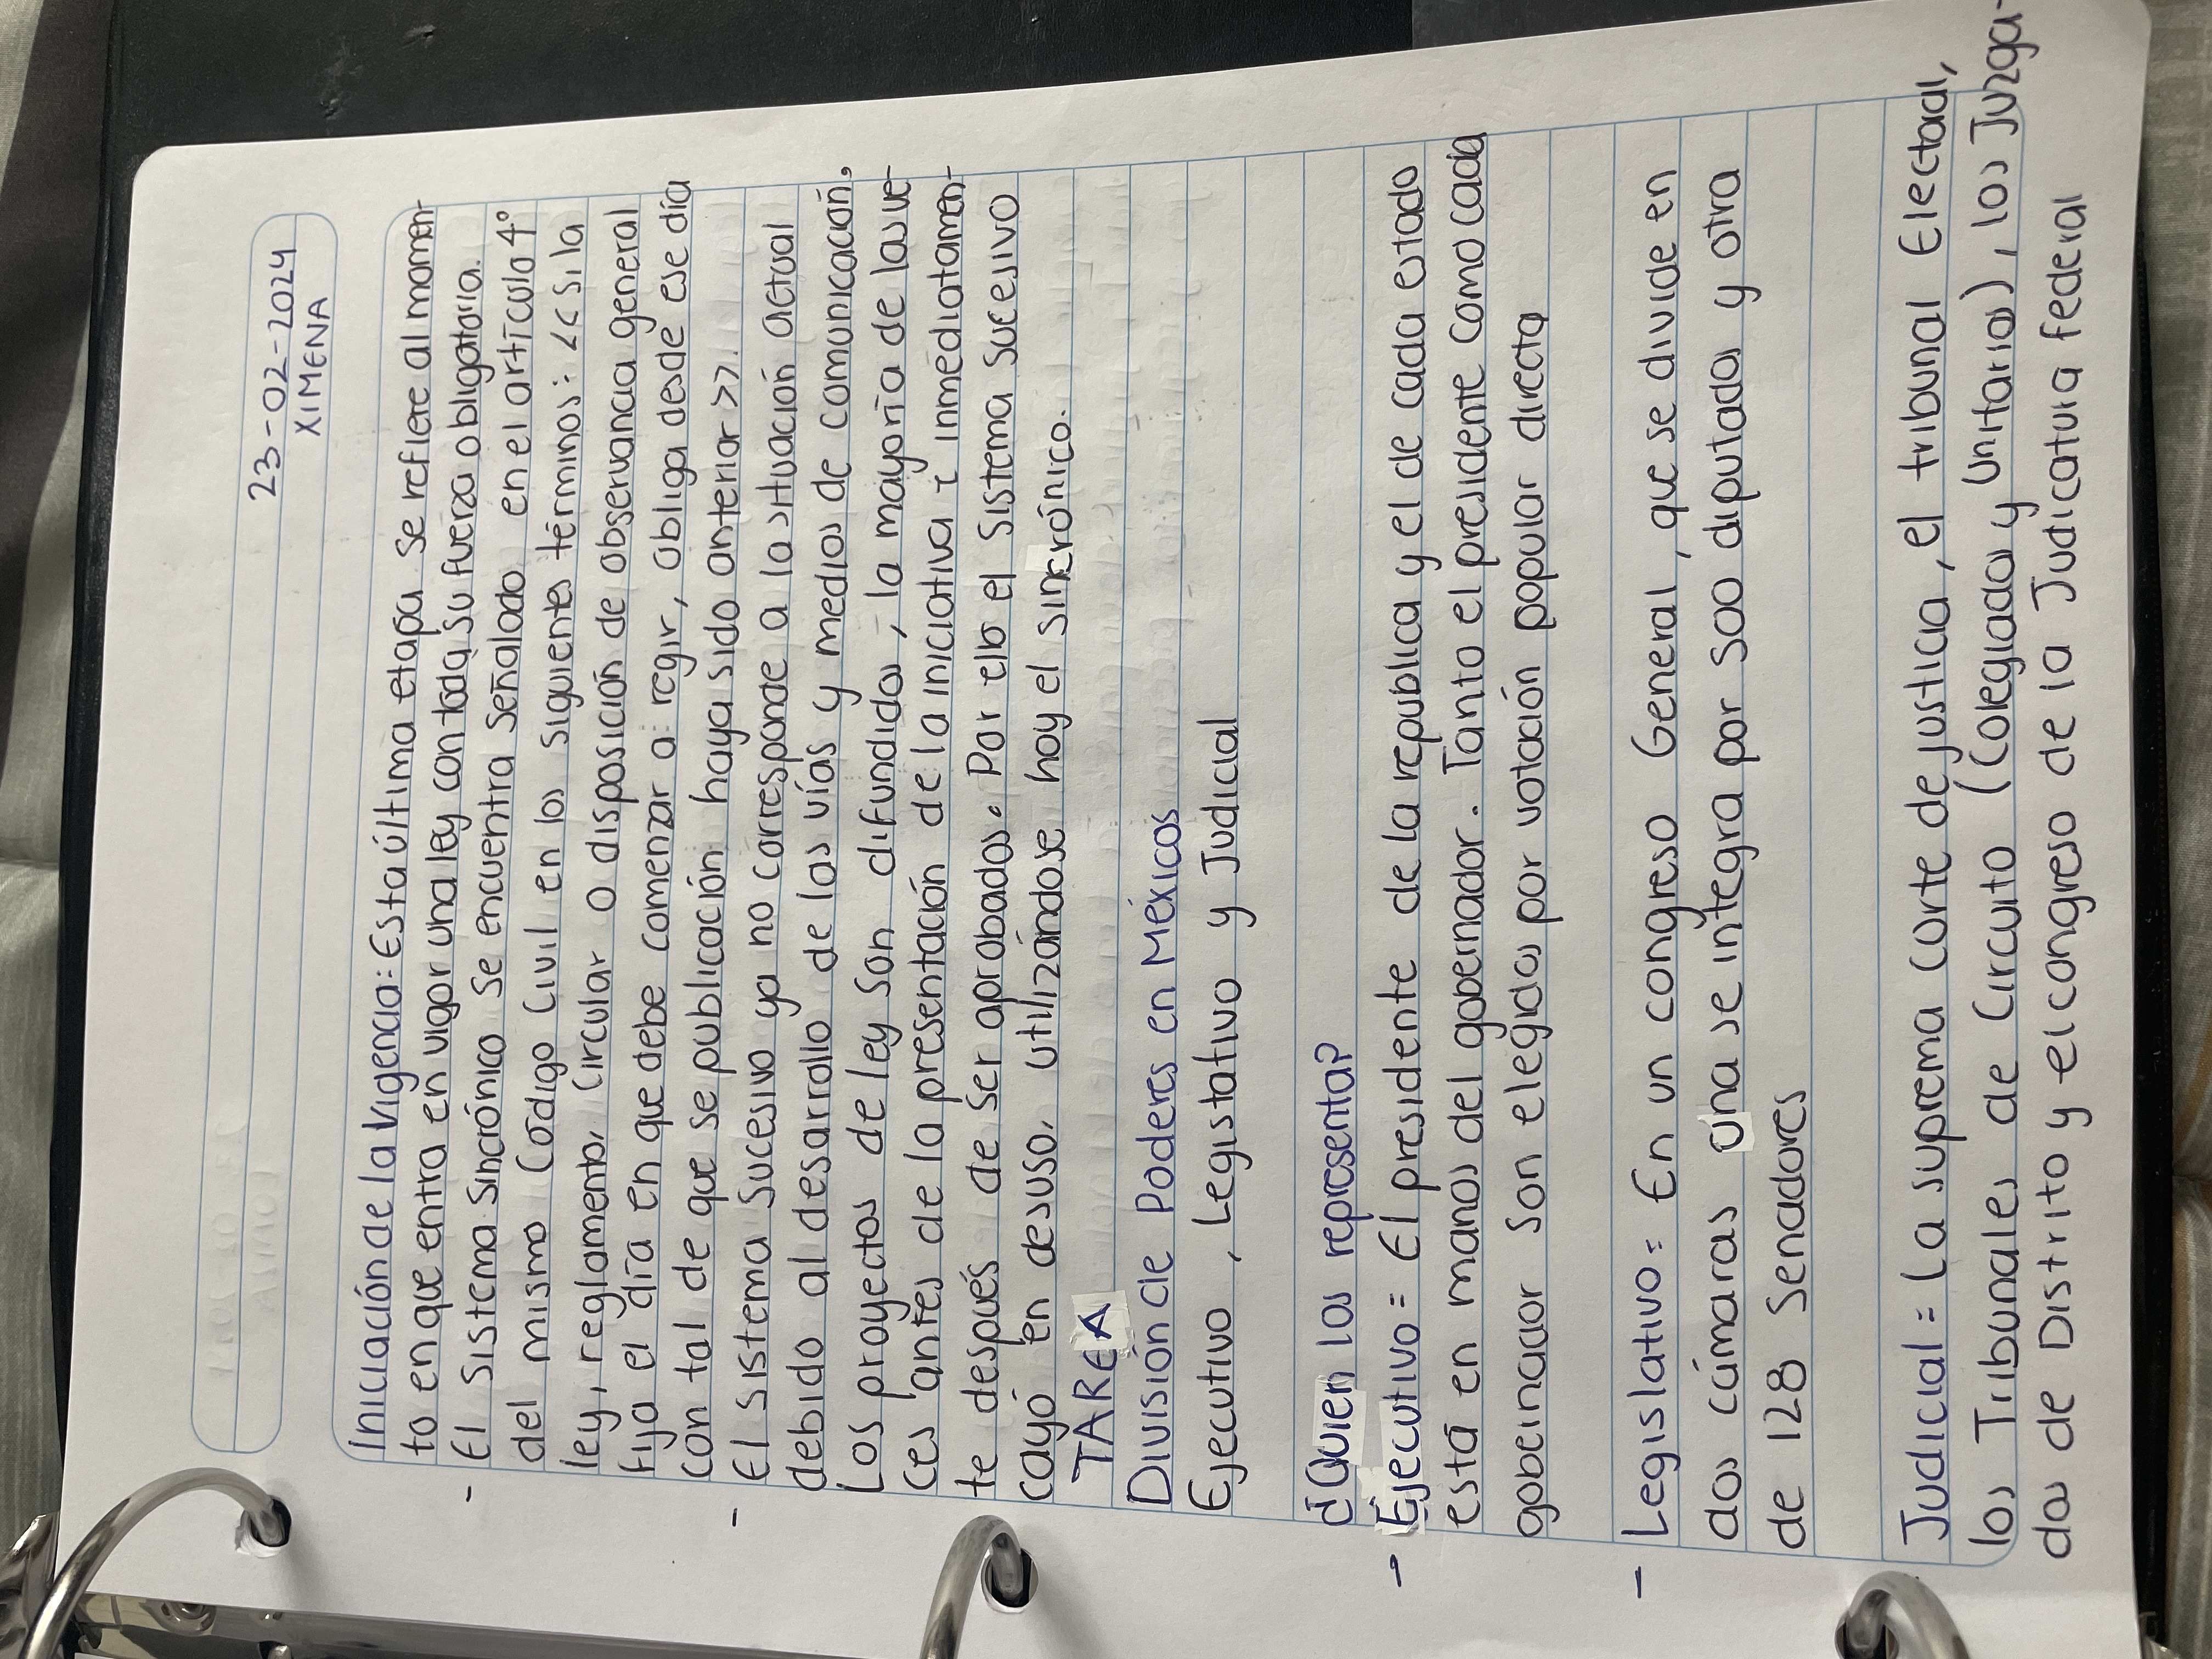 23-02-2024
XIMENA
Iniciación de la Vigencia: Esta última etapa se refiere al momen-
to en que entra en vigor una ley con toda su fuerza obligatoria.
- El sistema sincrónico se encuentra señalado en el artículo 4°
del mismo Código Civil en los siguientes términos: <<Si la
ley, reglamento, circular o disposición de observancia general
fija el día en que debe comenzar a regir, obliga desde ese día
con tal de que se publicación haya sido anterior>>.
- El sistema sucesivo ya no corresponde a la situación actual
debido al desarrollo de las vías y medios de comunicación.
Los proyectos de ley son difundidos, la mayoría de las ve-
ces antes de la presentación de la iniciativa e inmediatamen-
te después de ser aprobados. Por ello el sistema sucesivo
cayó en desuso, utilizándose hoy el sincrónico.
TAREA
División de Poderes en Méxicos
Ejecutivo, Legistativo y Judicial
¿Quien los representa?
- Ejecutivo = El presidente de la republica y el de cada estado
está en manos del gobernador. Tanto el presidente como cada
gobernador son elegidos por votación popular directa
- Legislativo = En un congreso General, que se divide en
dos cámaras una se integra por 500 diputados y otra
de 128 Senadores
Judicial = La suprema corte de justicia, el tribunal Electoral,
los Tribunales de Circuito (Colegiados y Unitarios), los Juzga-
dos de Distrito y el congreso de la Judicatura federal